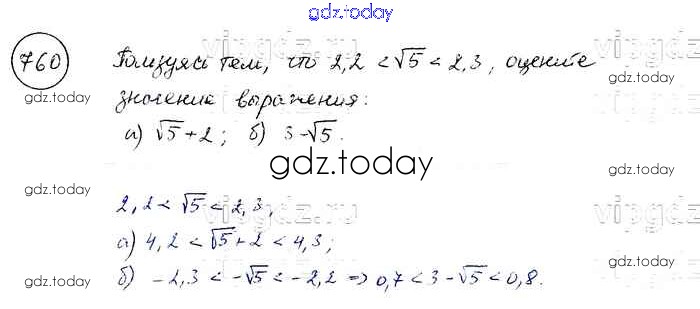 gdz.today
760 Пользуясь тем, что 2,2 < √5 < 2,3, оцените
значение выражения:
gdz.today
а) √5 + 2; б) 3 - √5.
gdz.today
gdz.today
gdz.today
2,2 < √5 < 2,3,
vipgdz.ru
а) 4,2 < √5 + 2 < 4,3;
б) -2,3 < -√5 < -2,2 => 0,7 < 3 - √5 < 0,8.
gdz.today
gdz.today